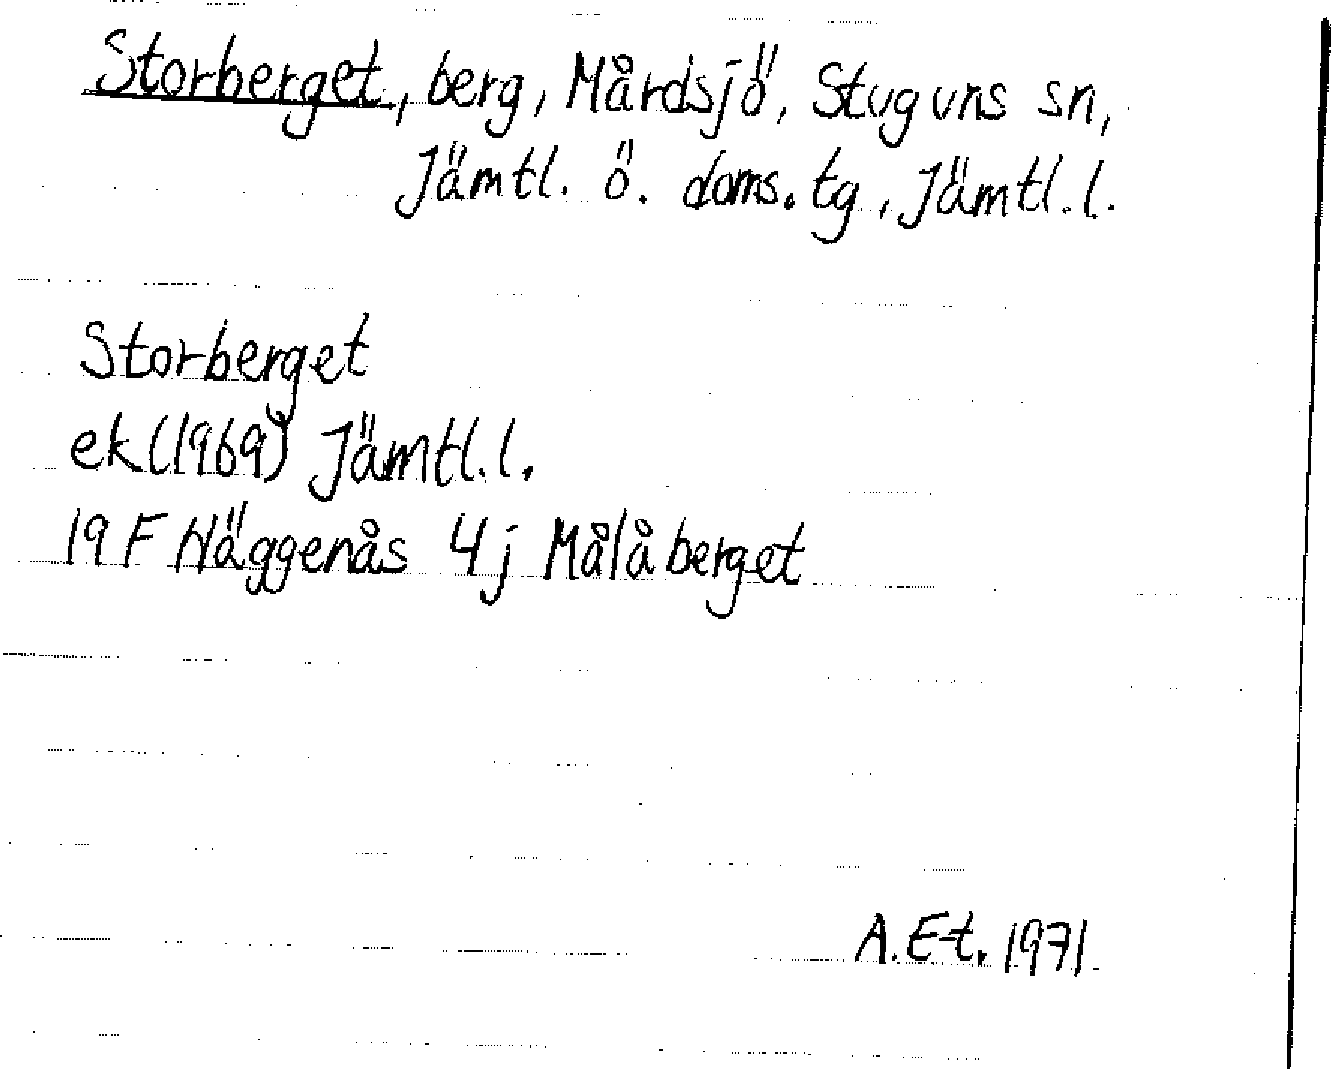 Storberget, berg, Mårdsjö, Stuguns sn,
Jämtl. ö. doms. tg, Jämtl. l.
Storberget
ek (1969) Jämtl. l.
19 F Häggenås 4 j Målåberget
A. E-t. 1971